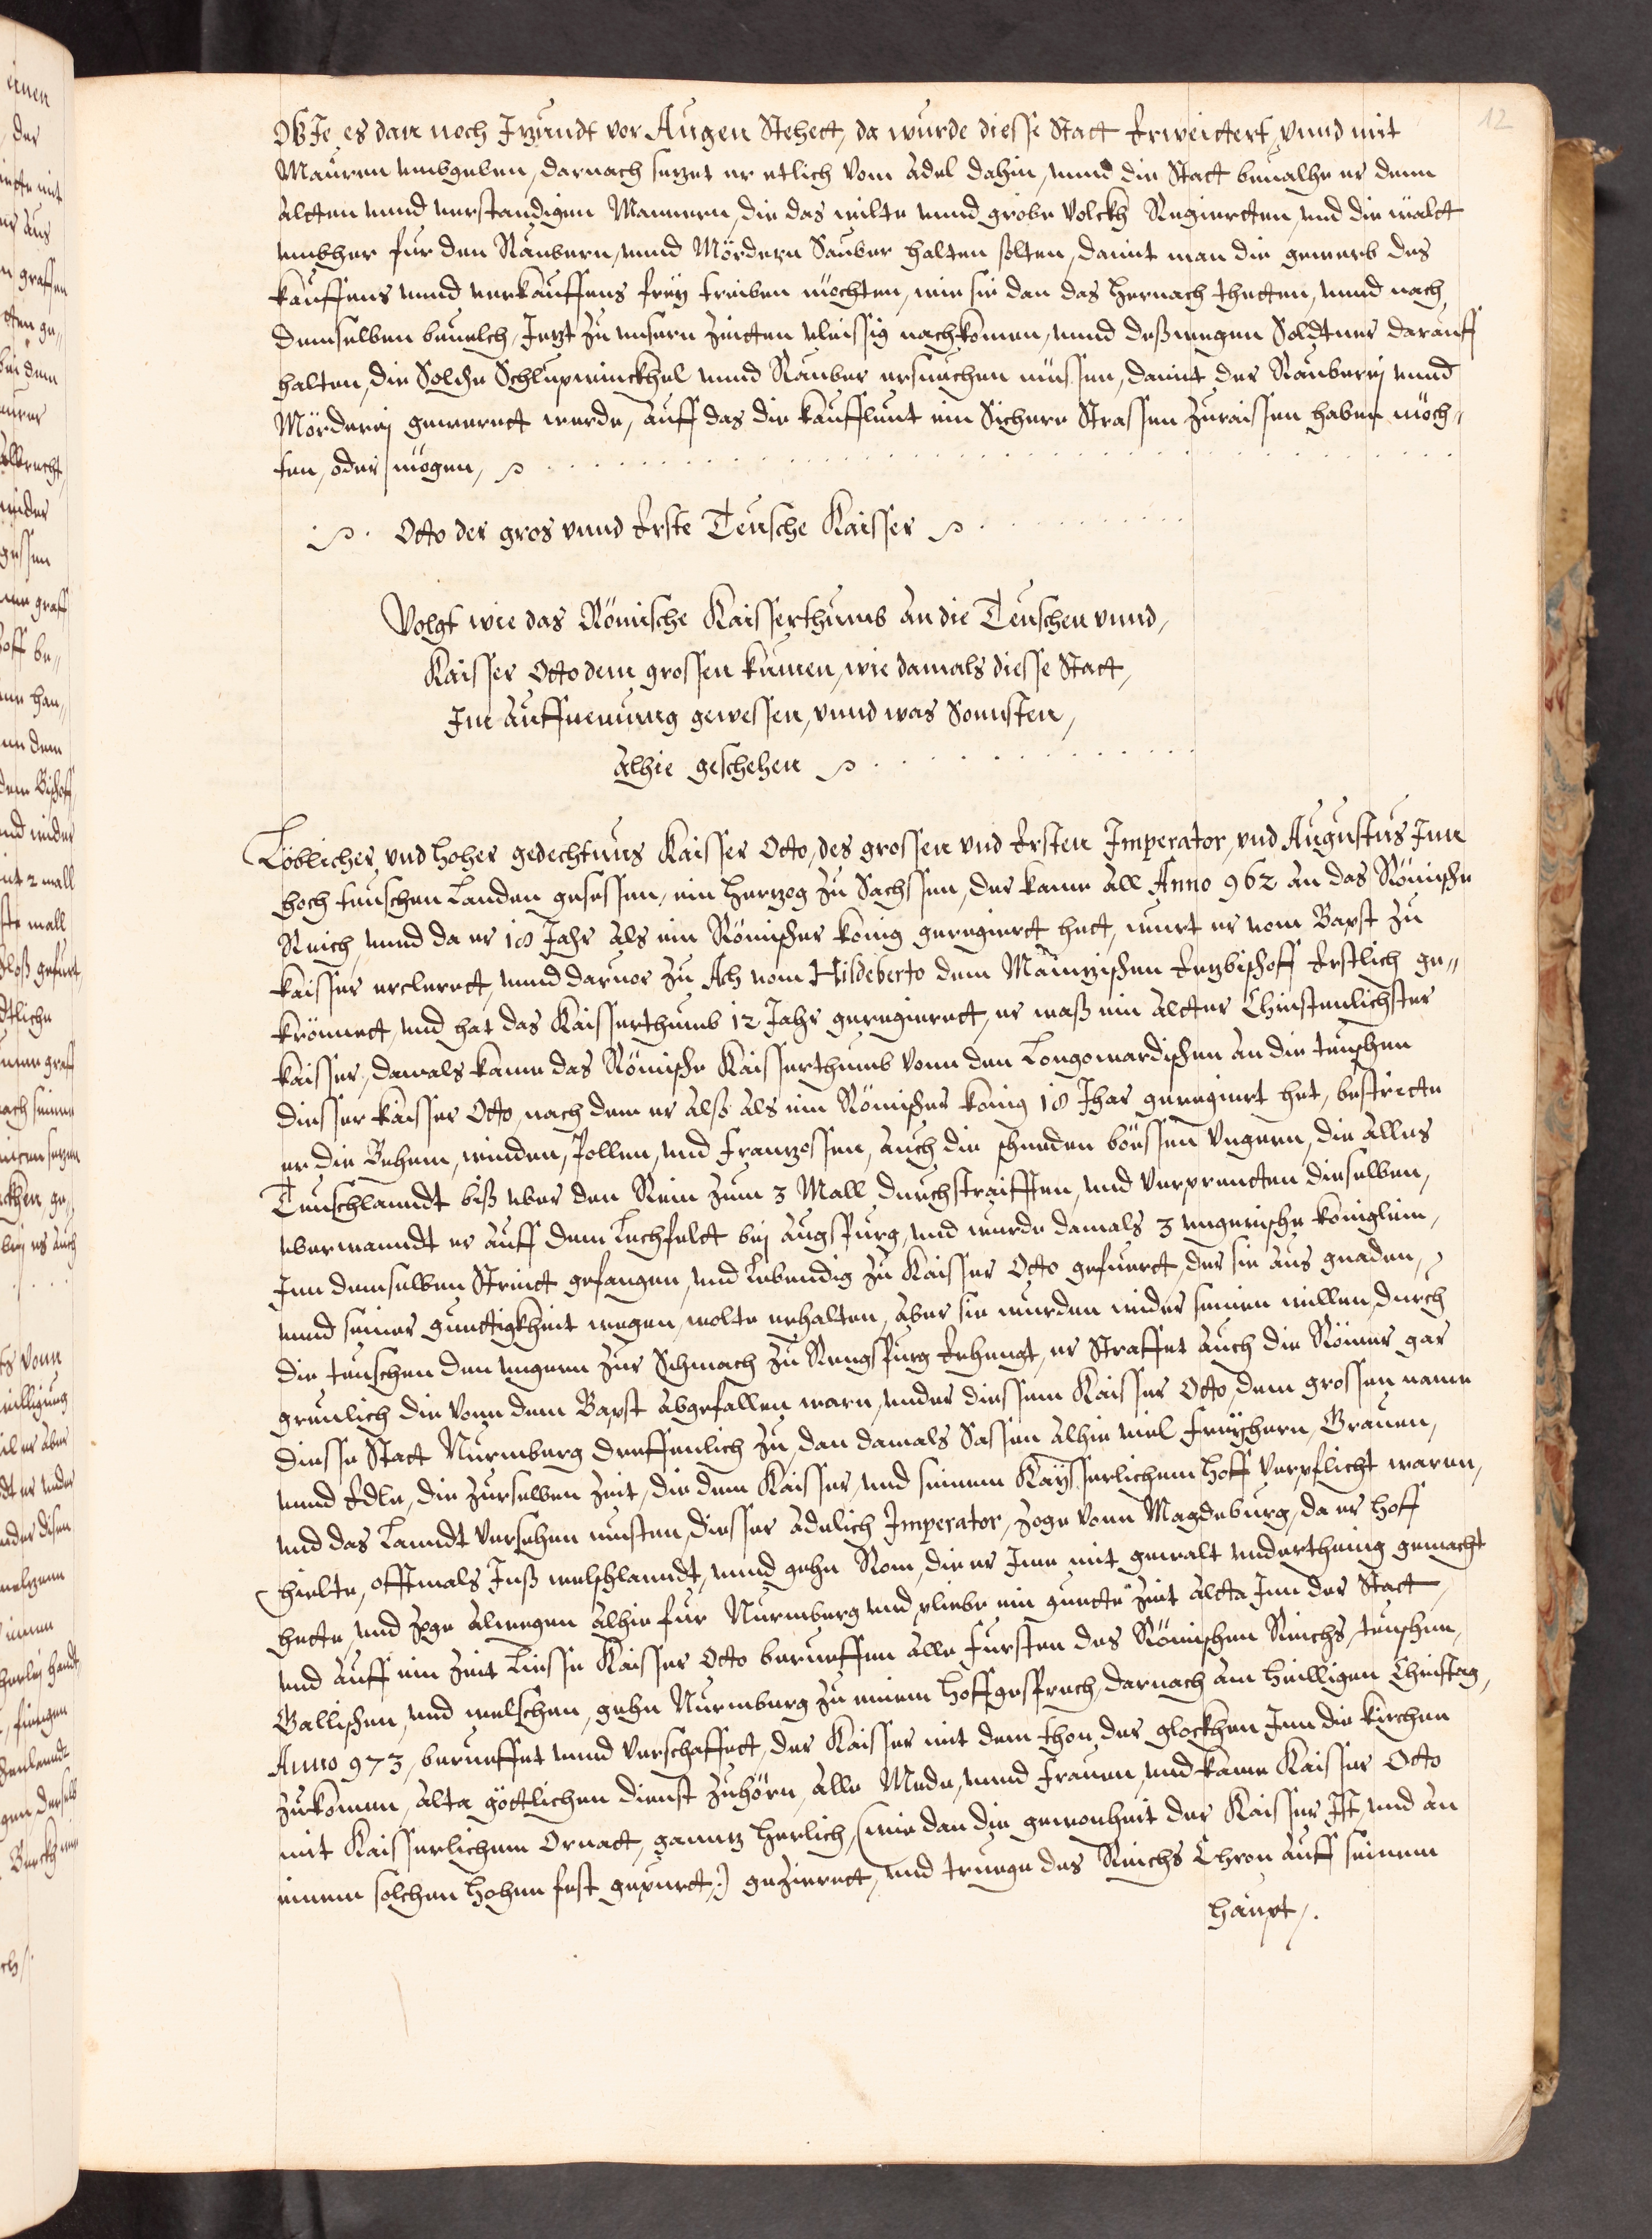 12
Wie es dan noch Itzundt vor Augen Stehett, da wurde diesse Statt Erweittert, vnnd mit
Mauren vmbgeben, darnach setzet er etlich vom Adel dahin, vnnd die Statt beualhe er denn
altten vnnd verstandigen Mannern, die das wilte vnnd grobe Volckh Regiertten, vnd die wält
vmbher fur den Raubern, vnnd Mördern Sauber halten solten, damit man die gewerb des
kauffens vnnd verkauffens freÿ treiben möchten, wie sie dan das hernach thetten, vnnd nach
demselben beuelch, Jetzt zu vnsern Zeitten vleissig nachkomen, vnnd deßwegen Soldtner darauff
halten, die Solche Schlupwinckhel vnnd Rauber ersuechen müssen, damit der Rauberej vnnd
Mörderej gewerett werde, auff das die kauffleut ein Sichere Strassen zuraissen haben möch„
ten, oder mögen,
Otto der gros vnnd Erste Teusche Kaisser
Volgt wie das Römische Kaisserthumb an die Teuschen vnnd,
Kaisser Otto dem grossen kumen, wie damals diesse Statt,
Im auffnemung gewessen, vnnd was Sonnsten,
alhie geschehen
Löblicher vnd hoher gedechtnus Kaisser Otto, des grossen vnd Ersten Imperator, vnd Augustus Inn
hoch teuschen Landen gesessen, ein Hertzog zu Sachssen, der kame All Anno 962 an das Römische
Reich, vnnd da er 18 Jahr als ein Römischer könig geregiertt hett, wurt er vom Bapst zu
kaisser erclerett, vnnd daruor zu Ach vom Hildeberto dem Maintzischen Ertzbischoff Erstlich ge„
krönnett, vnd hat das Kaisserthumb 12 Jahr geregierett, er waß ein altter Christenlichster
kaisser, damals kame das Römische Kaisserthumb vonn den Longowardischen an die teuschen
diesser kaisser Otto, nach dem er also als ein Römischer könig 18 Jhar geregiert het, bestritte
er die Behem, winden, Pollen, vnd Frantzossen, auch die schneden böessen Vngern, die alles
Teuschlanndt biß vber den Rein zum 3 Mall durchstraifften, vnd verprentten dieselben,
vberwanndt er auff dem Lechfeldt bej Augspurg, vnd wurde damals 3 vngerische königlein,
Inn demselben Streitt gefangen, vnd Lebendig zu Kaisser Otto gefuertt, der sie aus gnaden,
vnnd seiner guettigkheit wegen, wolte erhalten, aber sie wurden wider seinen willen, durch
die teuschen den vngern zur Schmach zu Rengspurg Erhengt, er Straffet auch die Römer gar
greulich die vonn dem Bapst abgefallen warn, vnder diessem Kaisser Otto, dem grossen name
diesse Statt Nurmberg dreffenlich zu, dan damals Sassen alhie viel Freÿhern, Grauen,
vnnd Edle, die zurselben Zeit, die dem Kaisser, vnd seinem Kaÿsserlichem hoff verpflicht waren,
vnd das Lanndt versehen musten, diesser adelich Imperator, zoge vonn Magdeburg, da er hoff
hielte, offtmals Inß welschlanndt, vnnd gehn Rom, die er Ime mit gewalt vnderthenig gemacht
hette, vnd zoge alwegen alhie fur Nurmberg vnd pliebe ein guette Zeit altta Inn der Statt,
vnd auff ein Zeit Liesse Kaisser Otto berueffen alle fursten des Römischen Reichs, teuschen,
Gallischen, vnd welschen, gehn Nurmberg zu einem hoffgesprech, darnach am heilligen Christag,
Anno 973, berueffet vnnd verschaffett, der Kaisser mit dem thon der glockhen Inn die kirchen
zukomen, alta göttlichen dienst zuhörn, alle Mede, vnnd frauen, vnd kame Kaisser Otto
mit Kaisserlichem Ornatt, ganntz herlich, (wie dan die gewonheit der Kaisser Ist, vnd an
einem solchen hohen fest gepurtt,) gezierett, vnd truege des Reichs Chron auff seinem
haupt,.